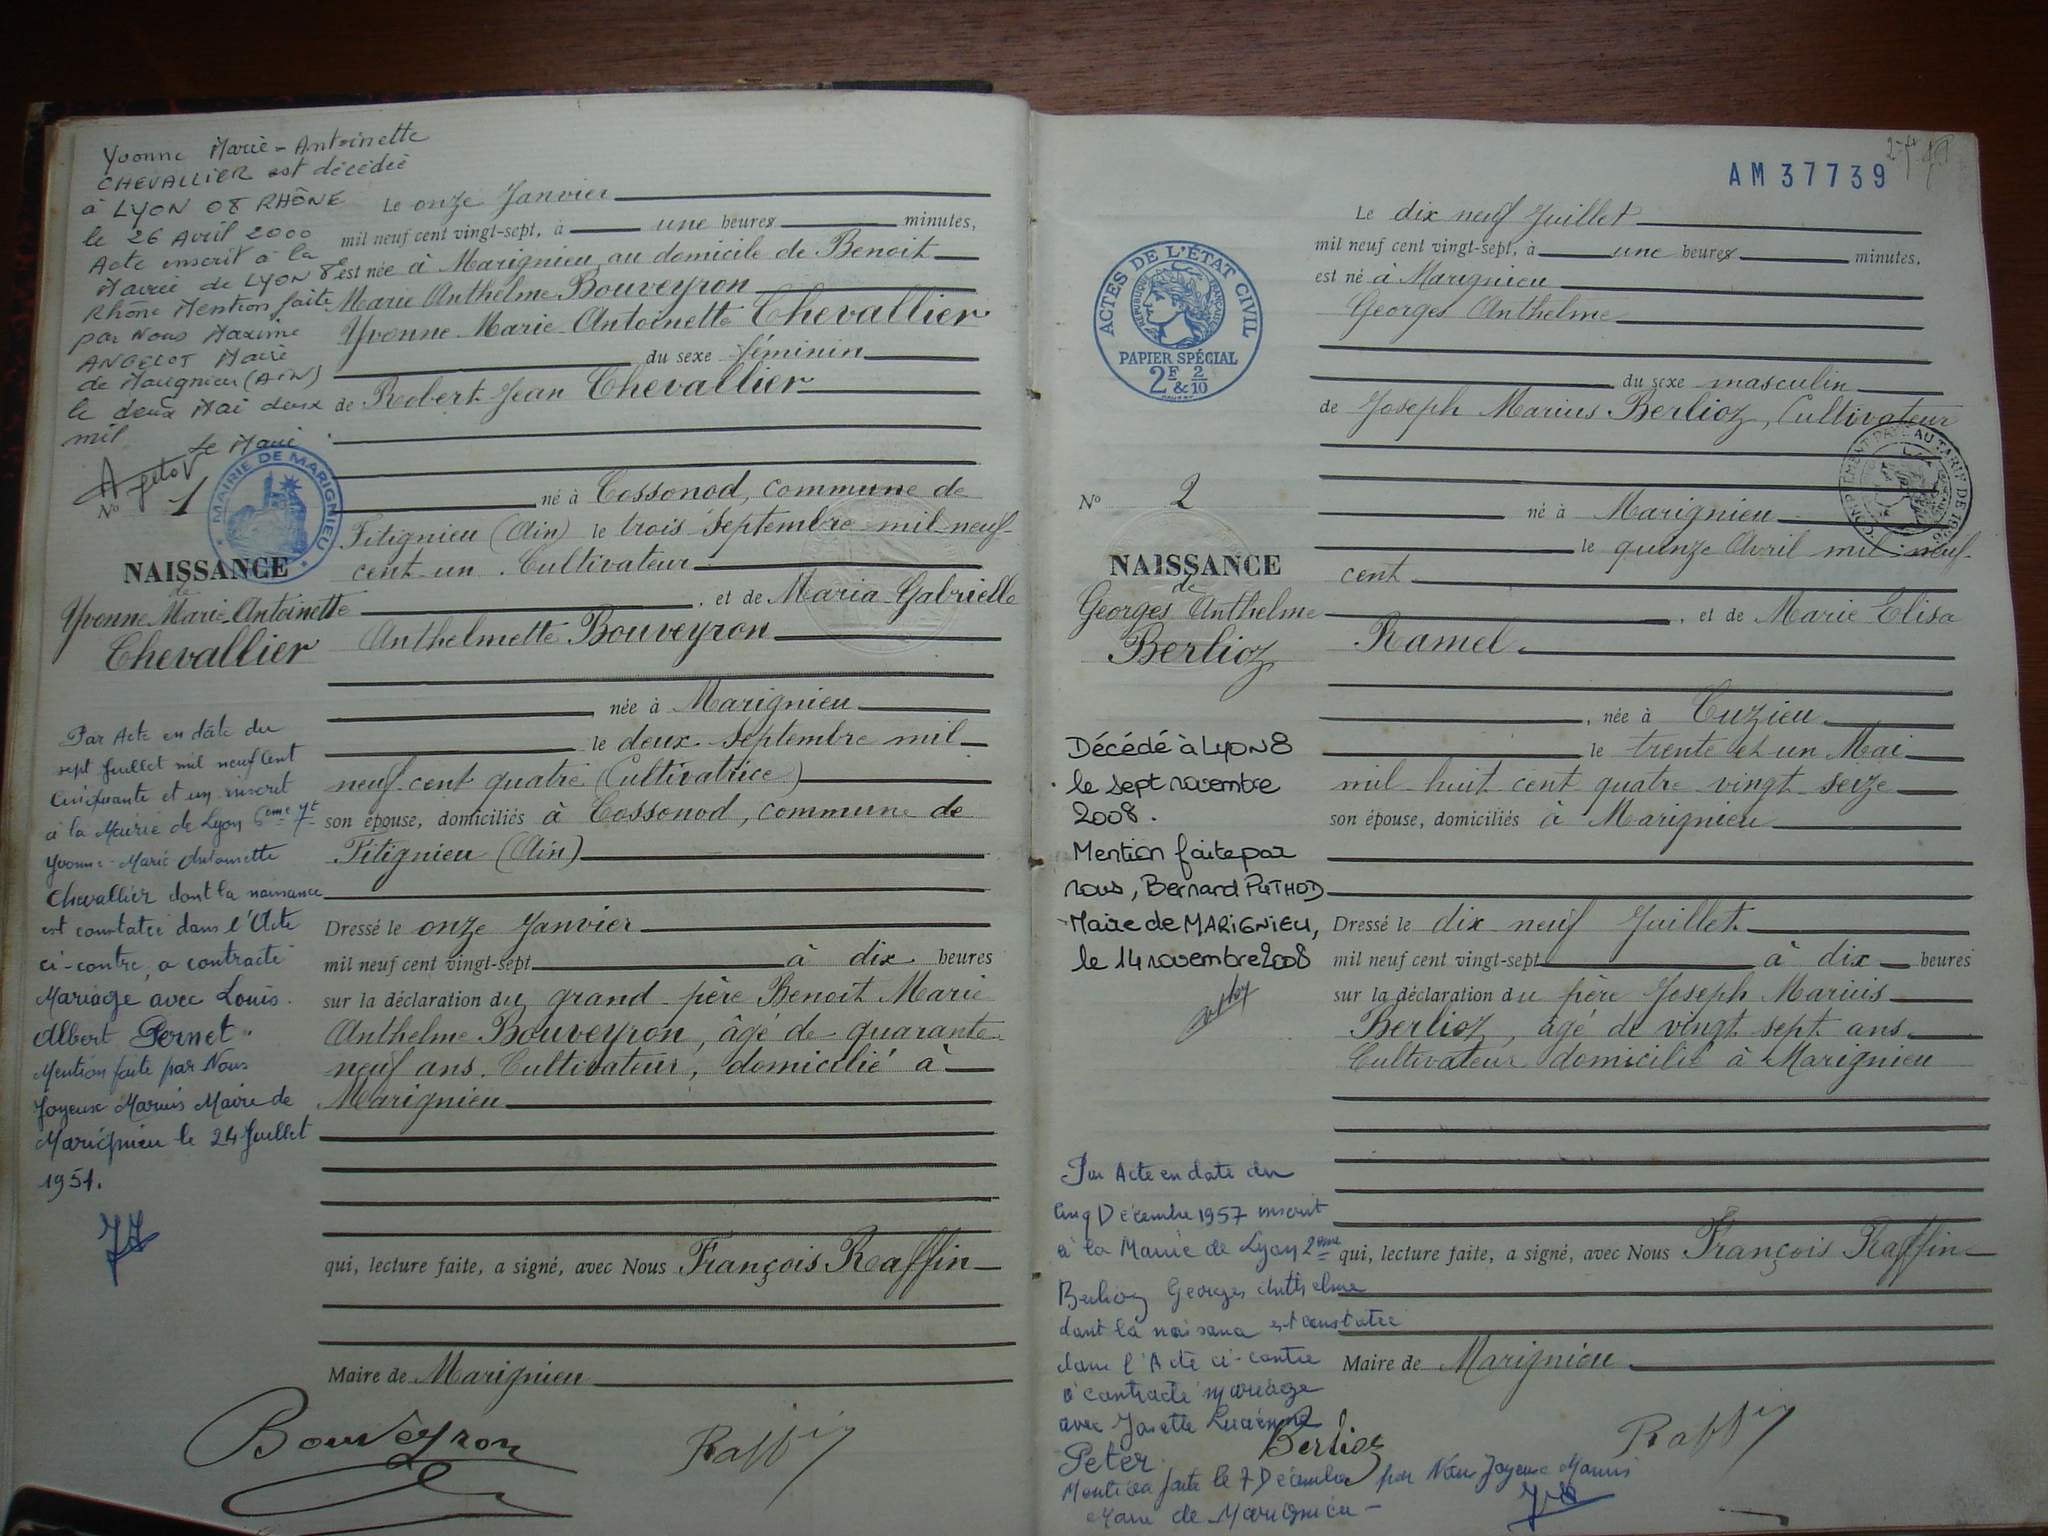 Yvonne Marie-Antoinette
CHEVALLIER est décédée
à LYON 08 RHÔNE
le 26 Avril 2000
Acte inscrit à la
Mairie de LYON 8e
Rhône Mention faite
par Nous Maxime
ANGELOT Maire
de Marignieu (AIN)
le deux Mai deux
mil
Le Maire
MAIRIE DE MARIGNIEU
No 1
NAISSANCE
de
Yvonne Marie Antoinette
Chevallier
Par Acte en date du
sept Juillet mil neuf cent
Cinquante et un inscrit
à la Mairie de Lyon 6eme
Yvonne-Marie Antoinette
Chevallier dont la naissance
est constatée dans l'Acte
ci-contre, a contracté
Mariage avec Louis
Albert Pernet.
Mention faite par Nous
Joyeux Marius Maire de
Marignieu le 24 Juillet
1951.
Le onze Janvier
mil neuf cent vingt-sept, à une heures minutes,
est née à Marignieu au domicile de Benoit
Marie Anthelme Bouveyron
Yvonne Marie Antoinette Chevallier
du sexe féminin
de Robert Jean Chevallier
né à Cossonod, commune de
Fitignieu (Ain) le trois Septembre mil neuf
cent un. Cultivateur
, et de Maria Gabrielle
Anthelmette Bouveyron
née à Marignieu
le deux Septembre mil
neuf cent quatre (Cultivatrice)
son épouse, domiciliés à Cossonod, commune de
Fitignieu (Ain)
Dressé le onze Janvier
mil neuf cent vingt-sept à dix heures
sur la déclaration du grand père Benoit Marie
Anthelme Bouveyron, âgé de quarante
neuf ans. Cultivateur, domicilié à
Marignieu
qui, lecture faite, a signé, avec Nous François Raffin
Maire de Marignieu
Bouveyron
Raffin
AM 37739
ACTES DE L'ÉTAT CIVIL
RÉPUBLIQUE FRANÇAISE
PAPIER SPÉCIAL
2F & 2/10
No 2
NAISSANCE
de
Georges Anthelme
Berlioz
Décédé à LYON 8
le sept novembre
2008.
Mention faite par
nous, Bernard PUTHOD
Maire de MARIGNIEU,
le 14 novembre 2008
Par Acte en date du
cinq Décembre 1957 inscrit
à la Mairie de Lyon 2eme
Berlioz Georges Anthelme
dont la naissance est constatée
dans l'Acte ci-contre
a contracté mariage
avec Josette Lucienne
Peter.
Mention faite le 7 Décembre par Nous Joyeux Marius
Maire de Marignieu
Le dix neuf Juillet
mil neuf cent vingt-sept, à une heures minutes,
est né à Marignieu
Georges Anthelme
du sexe masculin
de Joseph Marius Berlioz, Cultivateur
COMPLÉMENT PAYÉ AU TARIF DE 1926
né à Marignieu
le quinze Avril mil neuf
cent
, et de Marie Elisa
Ramel.
, née à Cuzieu
le trente et un Mai
mil huit cent quatre vingt seize
son épouse, domiciliés à Marignieu
Dressé le dix neuf Juillet
mil neuf cent vingt-sept à dix heures
sur la déclaration du père Joseph Marius
Berlioz, âgé de vingt sept ans
Cultivateur domicilié à Marignieu
qui, lecture faite, a signé, avec Nous François Raffin
Maire de Marignieu
Berlioz
Raffin